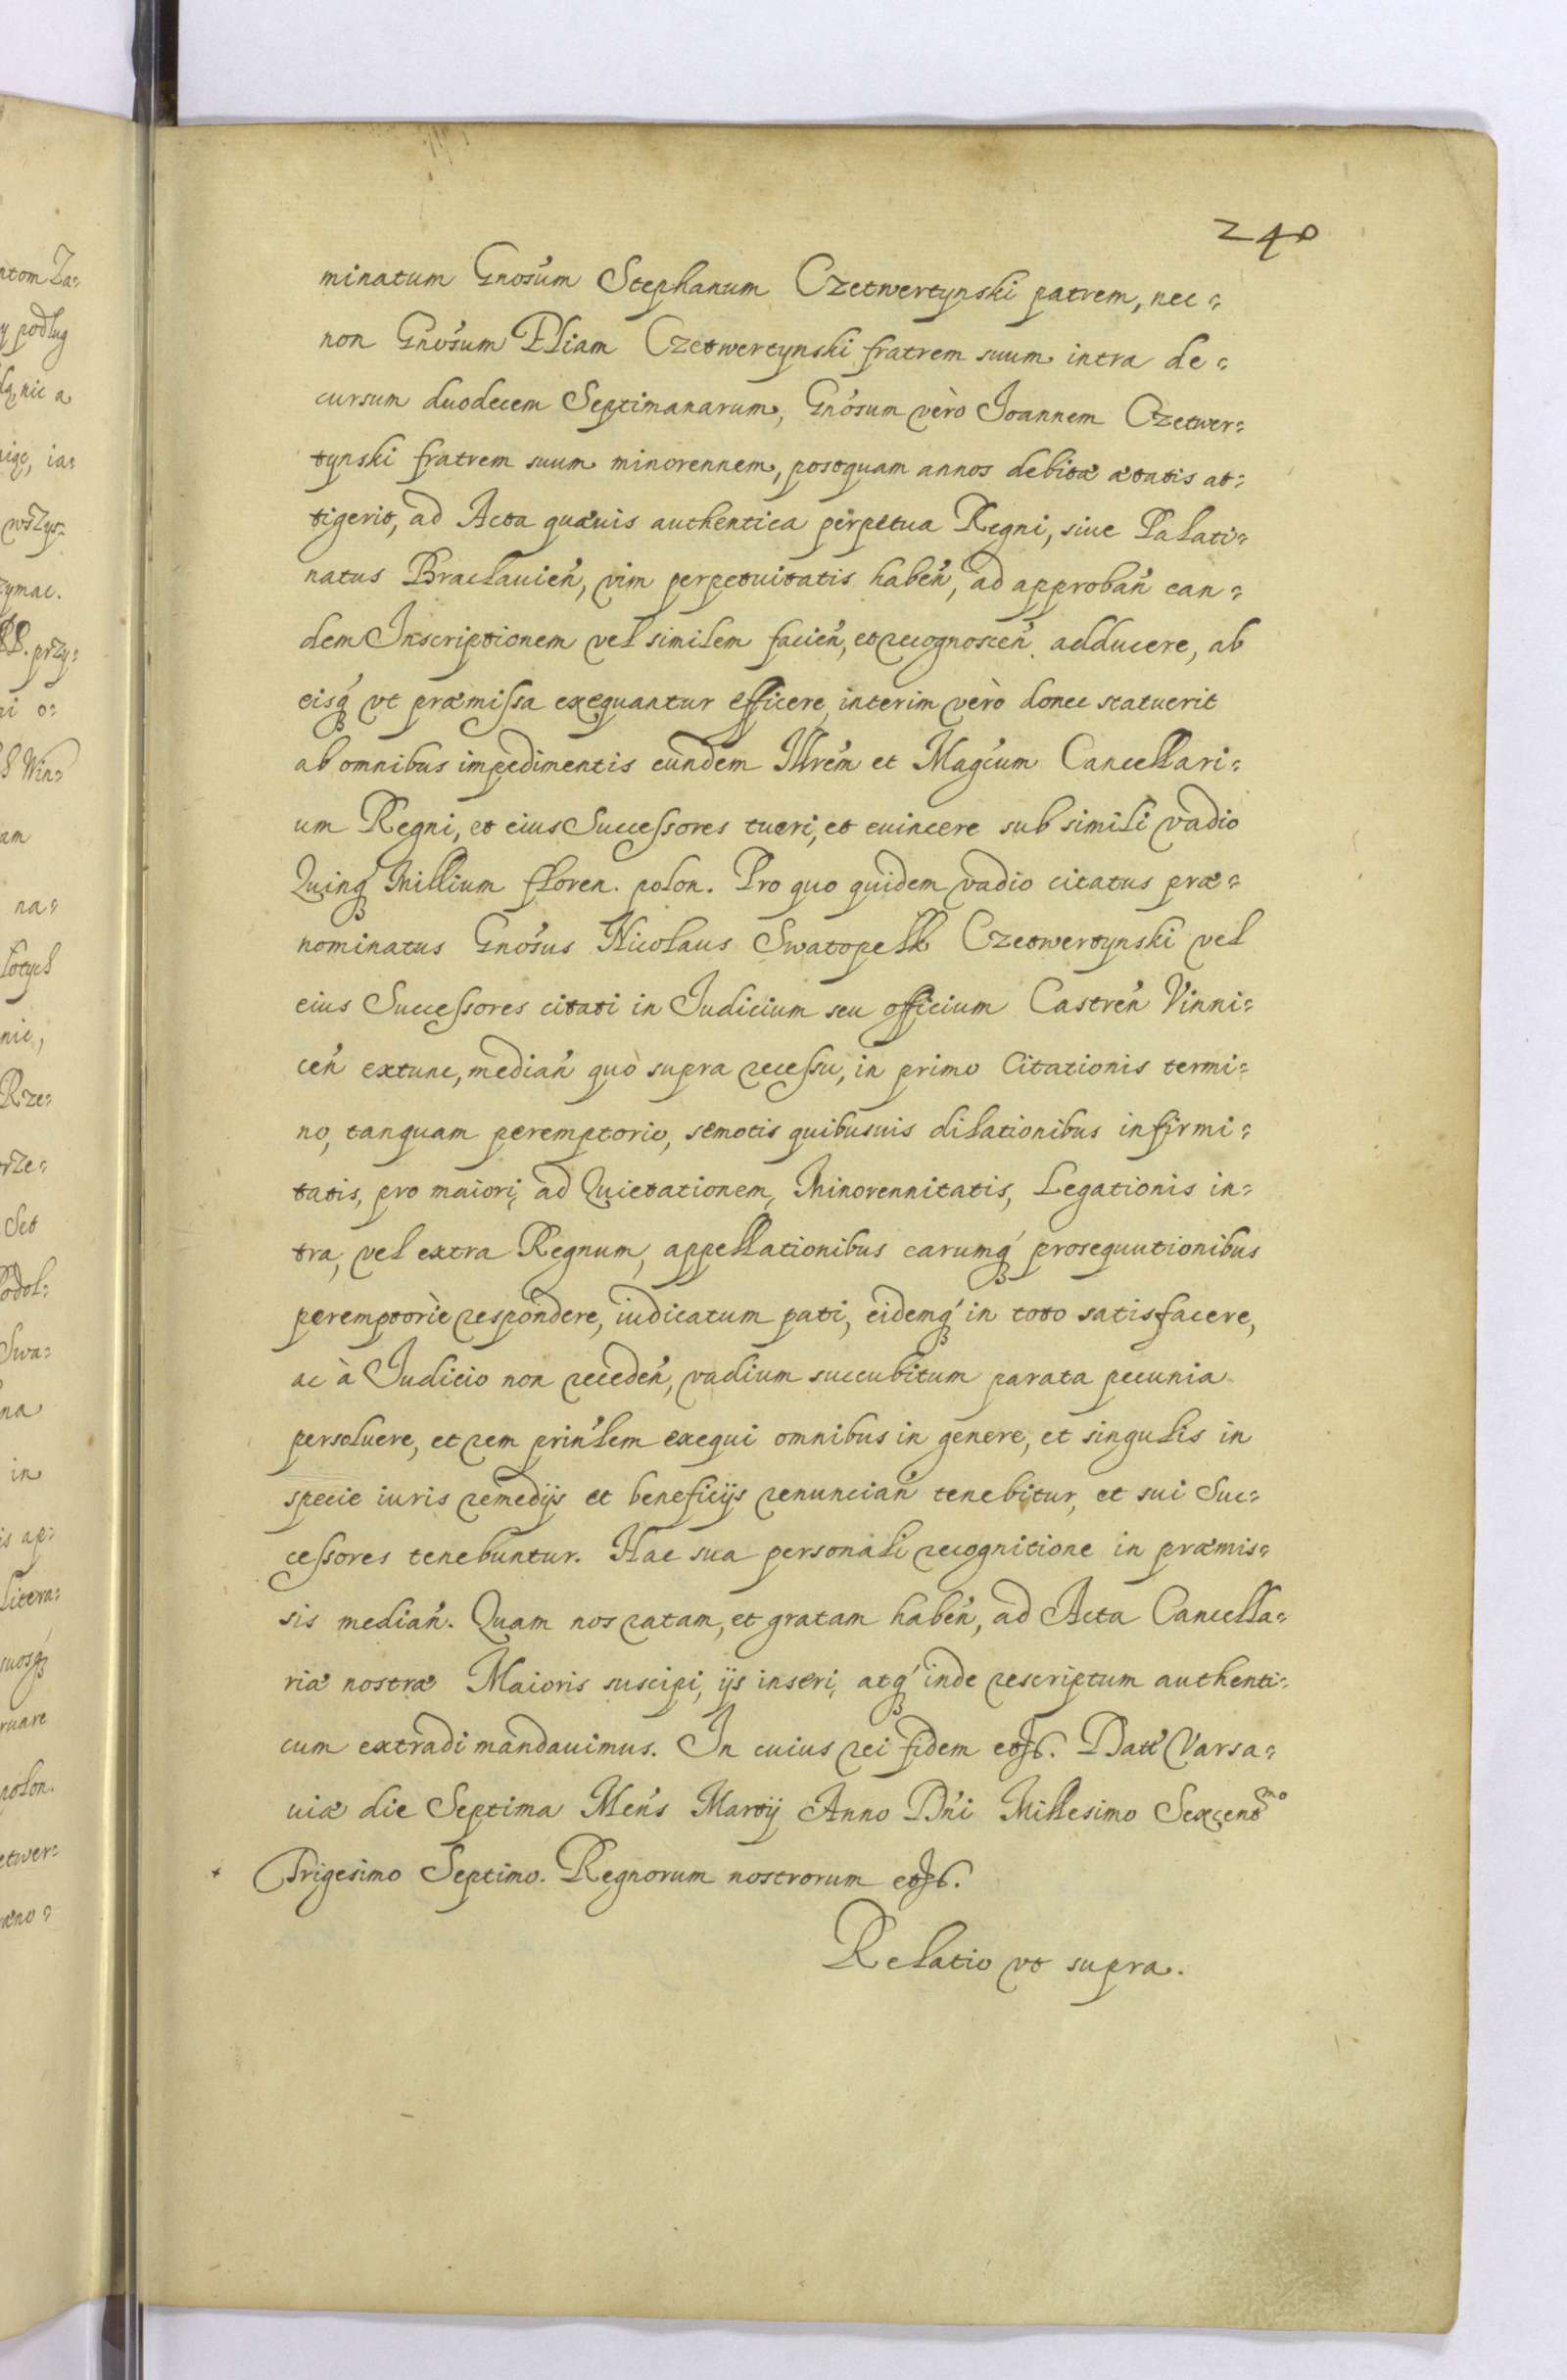 240
minatum Gnosum Stephanum Czetwertynski patrem, nec=
non Gnosum Eliam Czetwertynski fratrem suum intra de=
cursum duodecem Septimanarum, Gnosum vèro Joannem Czetwer=
tynski fratrem suum minorennem, postquam annos debitæ ætatis at=
tigerit, ad Acta quæuis authentica perpetua Regni, siue Palati=
natus Bracłauień, vim perpetuitatis habeń, ad approbań ean=
dem Inscriptionem vel similem facień, et recognosceń adducere, ab
eisq́ vt præmissa exequantur efficere, interim vèro donec statuerit
ab omnibus impedimentis eundem Illrem et Magcum Cancellari=
um Regni, et eius Successores tueri, et euincere sub simili vadio
Quinq́ Millium floren. polon. Pro quo quidem vadio citatus præ=
nominatus Gnosus Nicolaus Swatopelk Czetwertynski vel
eius Successores citati in Judicium seu officium Castreń Vinni=
ceń extunc, mediań quò supra recessu, in primo Citationis termi=
no, tanquam peremptorio, semotis quibusuis dilationibus infirmi=
tatis, pro maiori, ad Quietationem, Minorennitatis, Legationis in=
tra, vel extra Regnum, appellationibus earumq́ prosequutionibus
peremptoriè respondere, iudicatum pati, eidemq́ in toto satisfacere,
ac à Judicio non recedeń, vadium succubitum parata pecunia
persoluere, et rem prin'lem exequi omnibus in genere, et singulis in
specie iuris remedijs et beneficijs renuncian' tenebitur, et sui Suc=
cessores tenebuntur. Hac sua personali recognitione in præmis=
sis mediań. Quam nos ratam, et gratam habeń, ad Acta Cancella=
riæ nostræ Maioris suscipi, ijs inseri, atq́ inde rescriptum authenti=
cum extradi mandauimus. In cuius rei fidem etc. Datt Varsa=
uiæ die Septima Men's Martij Anno Dn'i Millesimo Sexcentmo
Trigesimo Septimo. Regnorum nostrorum etc.
Relatio vt supra.